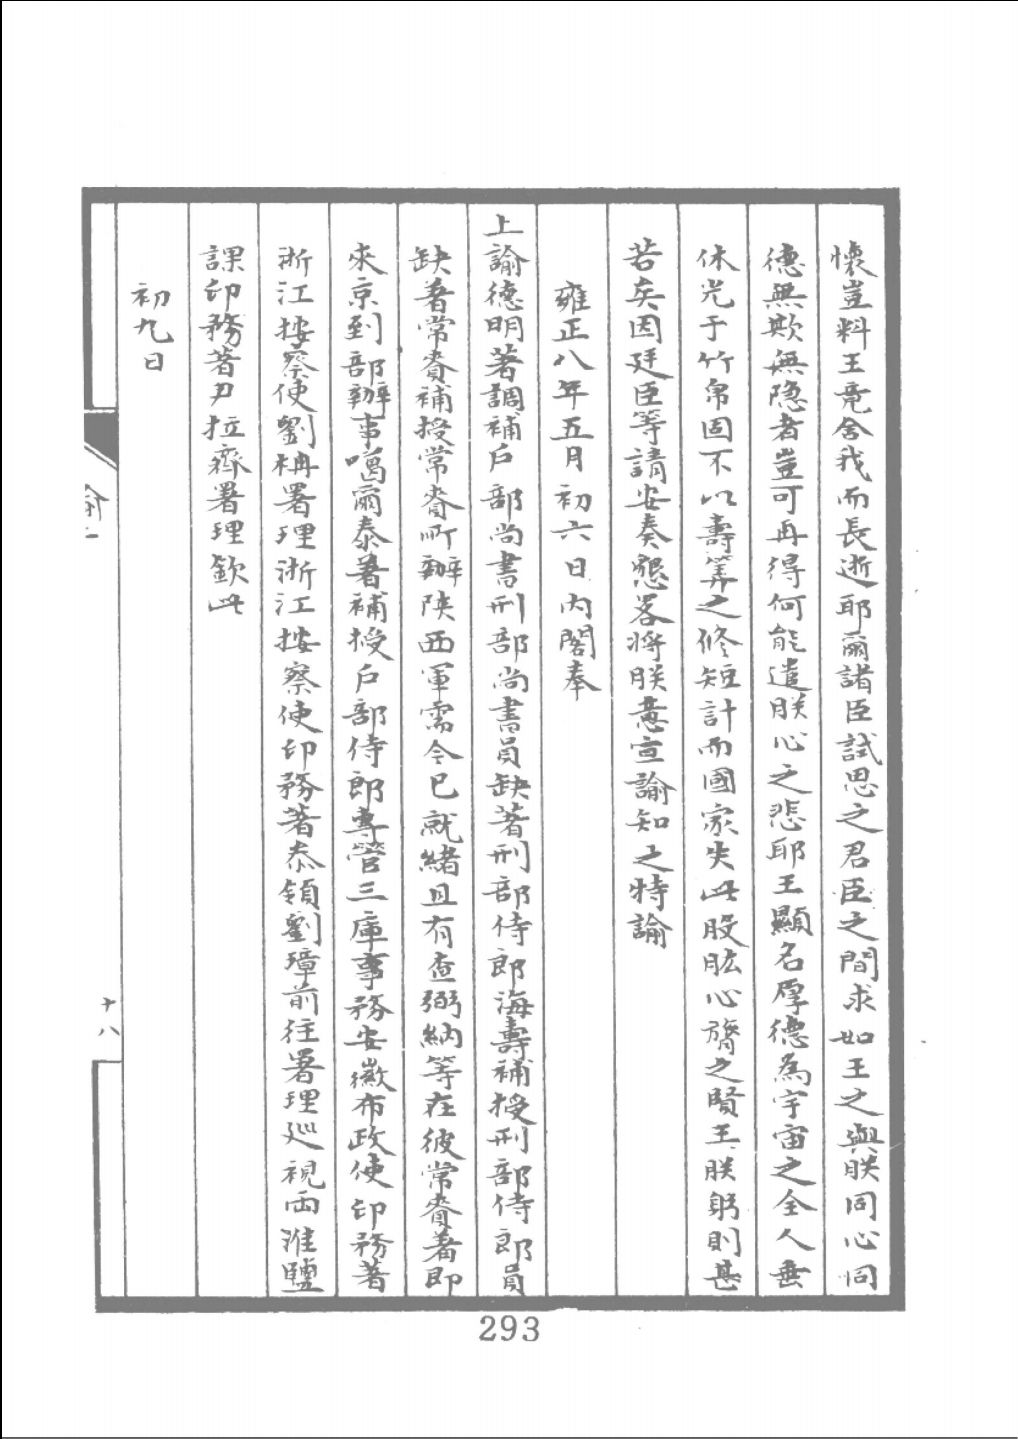 懷豈料王竟舍我而長逝耶爾諸臣試思之君臣之間求如王之與朕同心同
德無欺無隱者豈可再得何能遣朕心之悲耶王顯名厚德為宇宙之全人垂
休光于竹帛固不以壽筭之修短計而國家失此股肱心膂之賢王朕躬則甚
若矣因廷臣等請安奏懇畧將朕意宣諭知之特諭
雍正八年五月初六日內閣奉
上諭德明著調補戶部尚書刑部尚書員缺著刑部侍郎海壽補授刑部侍郎員
缺著常賚補授常賚所辦陝西軍需今已就緒且有查弼納等在彼常賚著即
來京到部辦事噶爾泰著補授戶部侍郎專管三庫事務安徽布政使印務著
浙江按察使劉柟署理浙江按察使印務著叅領劉璋前往署理巡視兩淮鹽
課印務著尹拉齊署理欽此
初九日
十八
293